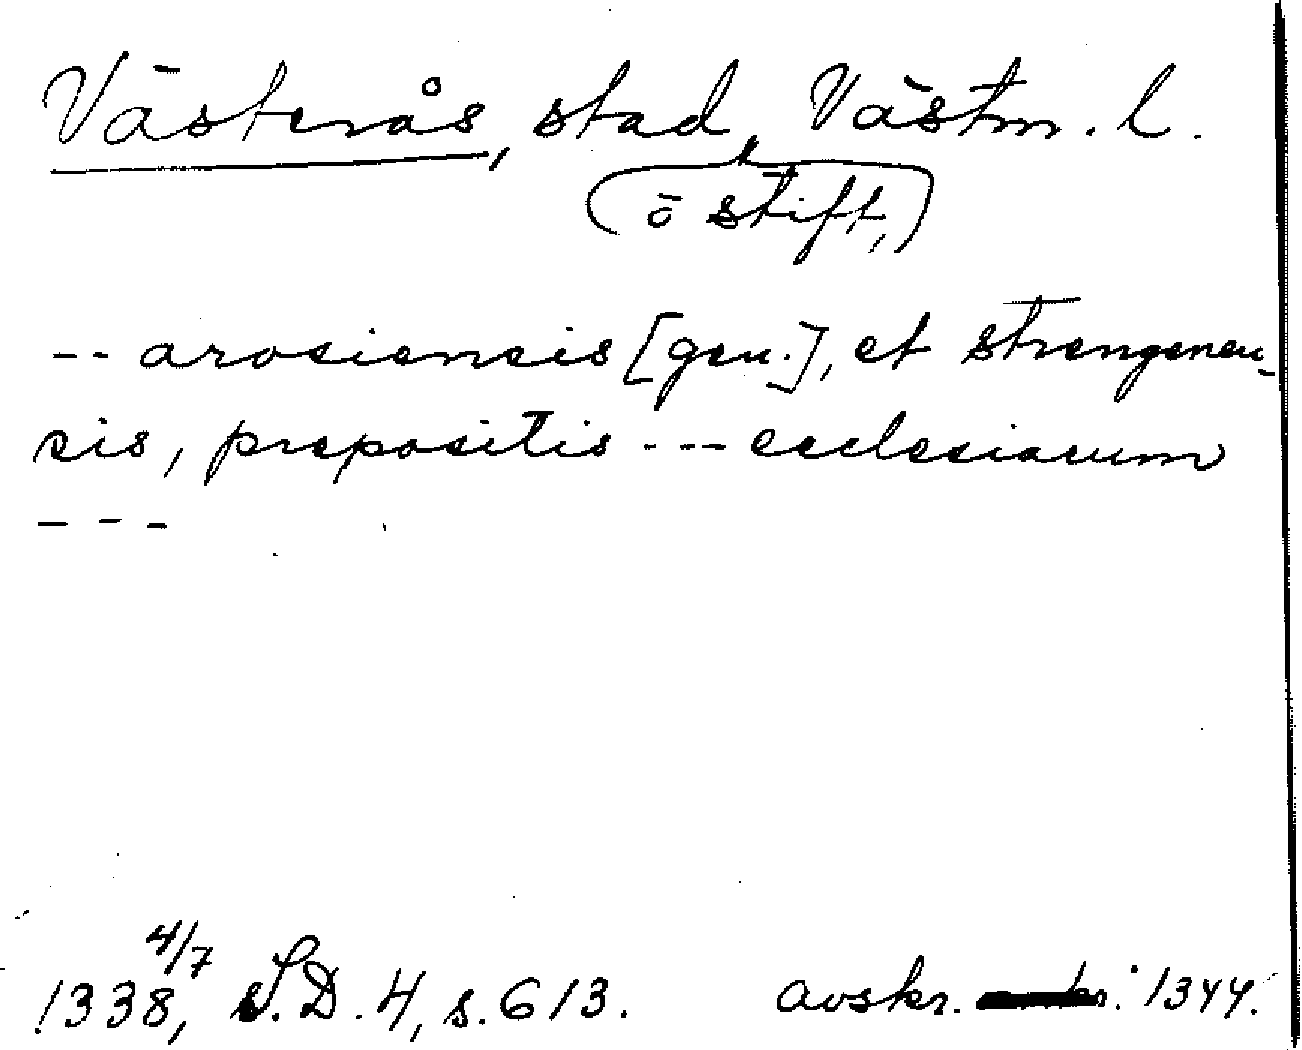 Västerås, stad, Västm. l.
(ö stift,)
-- arosiensis [gen.], et strengenen-
sis, prepositis --- ecclesiarum
---
1338, 4/7 S.D. 4, s. 613. avskr. 1344.